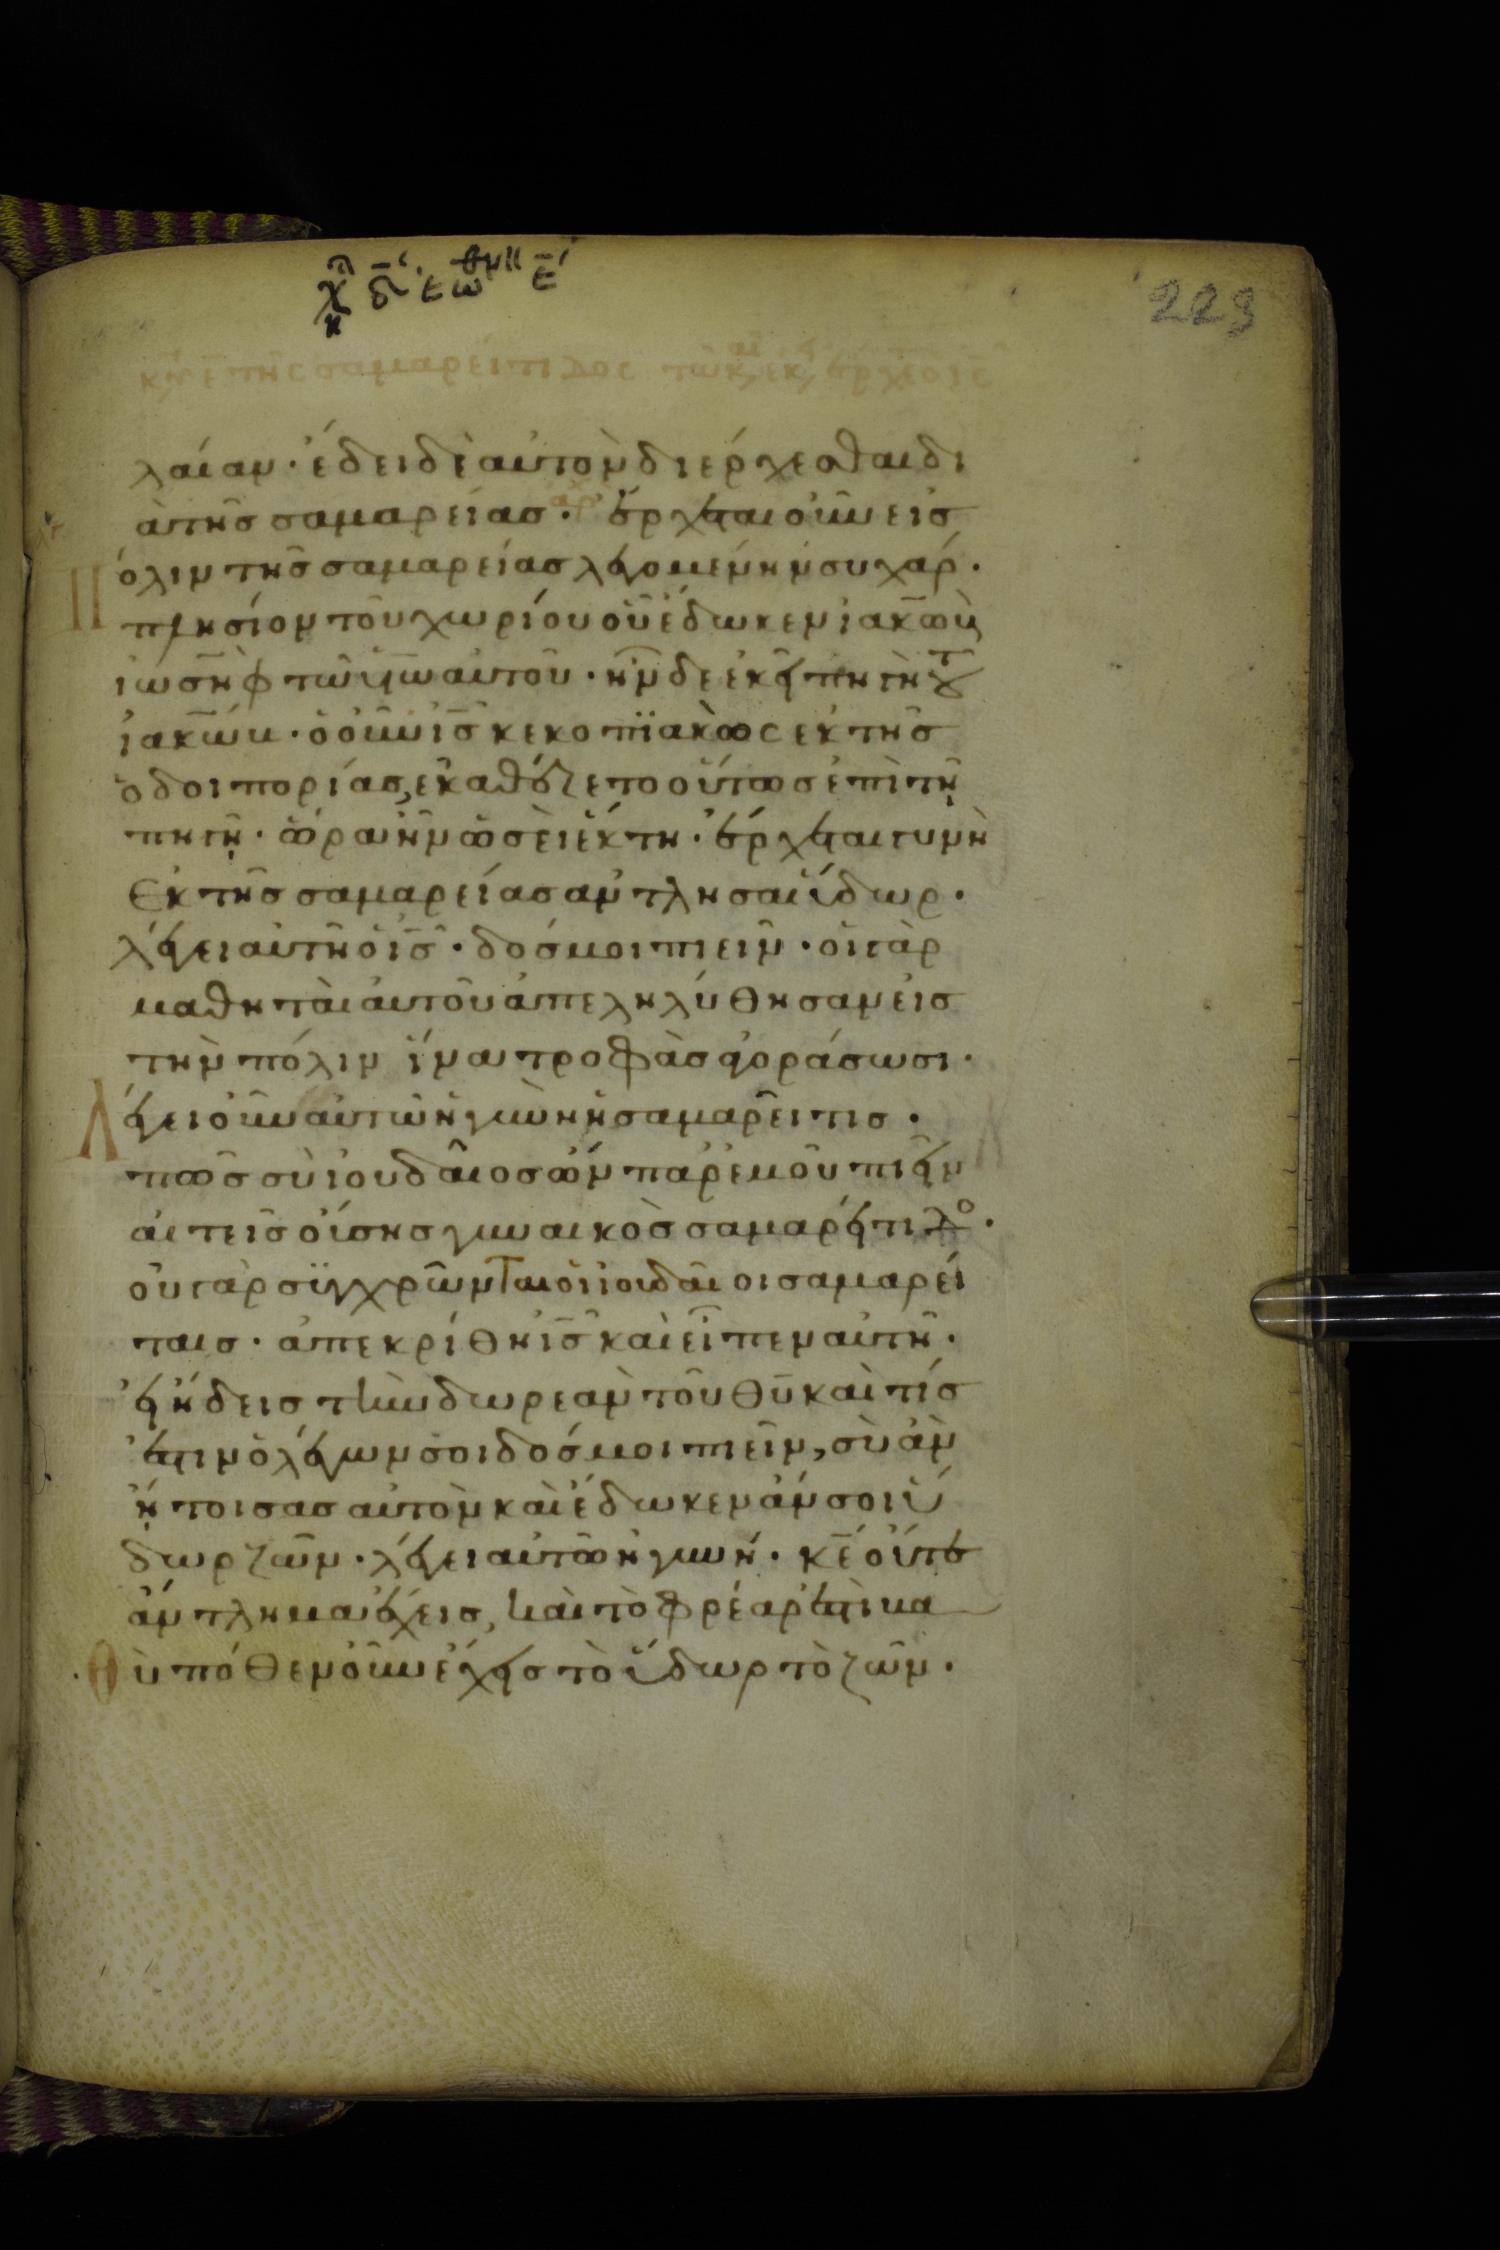 223
λαίαν · ἔδει δὲ αὐτὸν διέρχεσθαι δι
ὰ τῆς σαμαρείας · ἔρχεται οὖν εἰς
Π όλιν τῆς σαμαρείας λεγομένην συχάρ ·
πλησίον τοῦ χωρίου οὗ ἔδωκεν ἰακὼβ
ἰωσὴφ τῶ υἱῶ αὐτοῦ · ἦν δὲ ἐκεῖ πηγὴ τοῦ
ἰακώβ · ὁ οὖν ις κεκοπϊακὼς ἐκ τῆς
ὁδοιπορίας, ἐκαθέζετο οὕτως ἐπὶ τῆ
πηγῆ · ὥρα ἦν ὡσεὶ ἕκτη · ἔρχεται γυνὴ
ἐκ τῆς σαμαρείας ἀντλῆσαι ὕδωρ ·
λέγει αὐτῆ ὁ ις · δός μοι πιεῖν · οἱ γὰρ
μαθηταὶ αὐτοῦ ἀπεληλύθησαν εἰς
τὴν πόλιν ἵνα τροφὰς ἀγοράσωσι ·
Λ έγει οὖν αὐτῶ ἡ γυνὴ ἡ σαμαρεῖτις ·
πῶς σὺ ἰουδαῖος ὢν παρ ἐμοῦ πιεῖν
αἰτεῖς οὔσης γυναικὸς σαμαρείτιδο ·
οὐ γὰρ συγχρῶνται οἱ ἰουδαῖοι σαμαρεί
ταις · ἀπεκρίθη ις καὶ εἶπεν αὐτῆ ·
εἰ ἤδεις τὴν δωρεὰν τοῦ θυ καὶ τίς
ἐστιν ὁ λέγων σοι δός μοι πιεῖν, σὺ ἂν
ἤτησας αὐτὸν καὶ ἔδωκεν ἄν σοι ὕ
δωρ ζῶν · λέγει αὐτῶ ἡ γυνή · κε οὔτε
ἄντλημα ἔχεις, καὶ τὸ φρέαρ ἐστὶ βα
Θ ὺ πόθεν οὖν ἔχεις τὸ ὕδωρ τὸ ζῶν ·